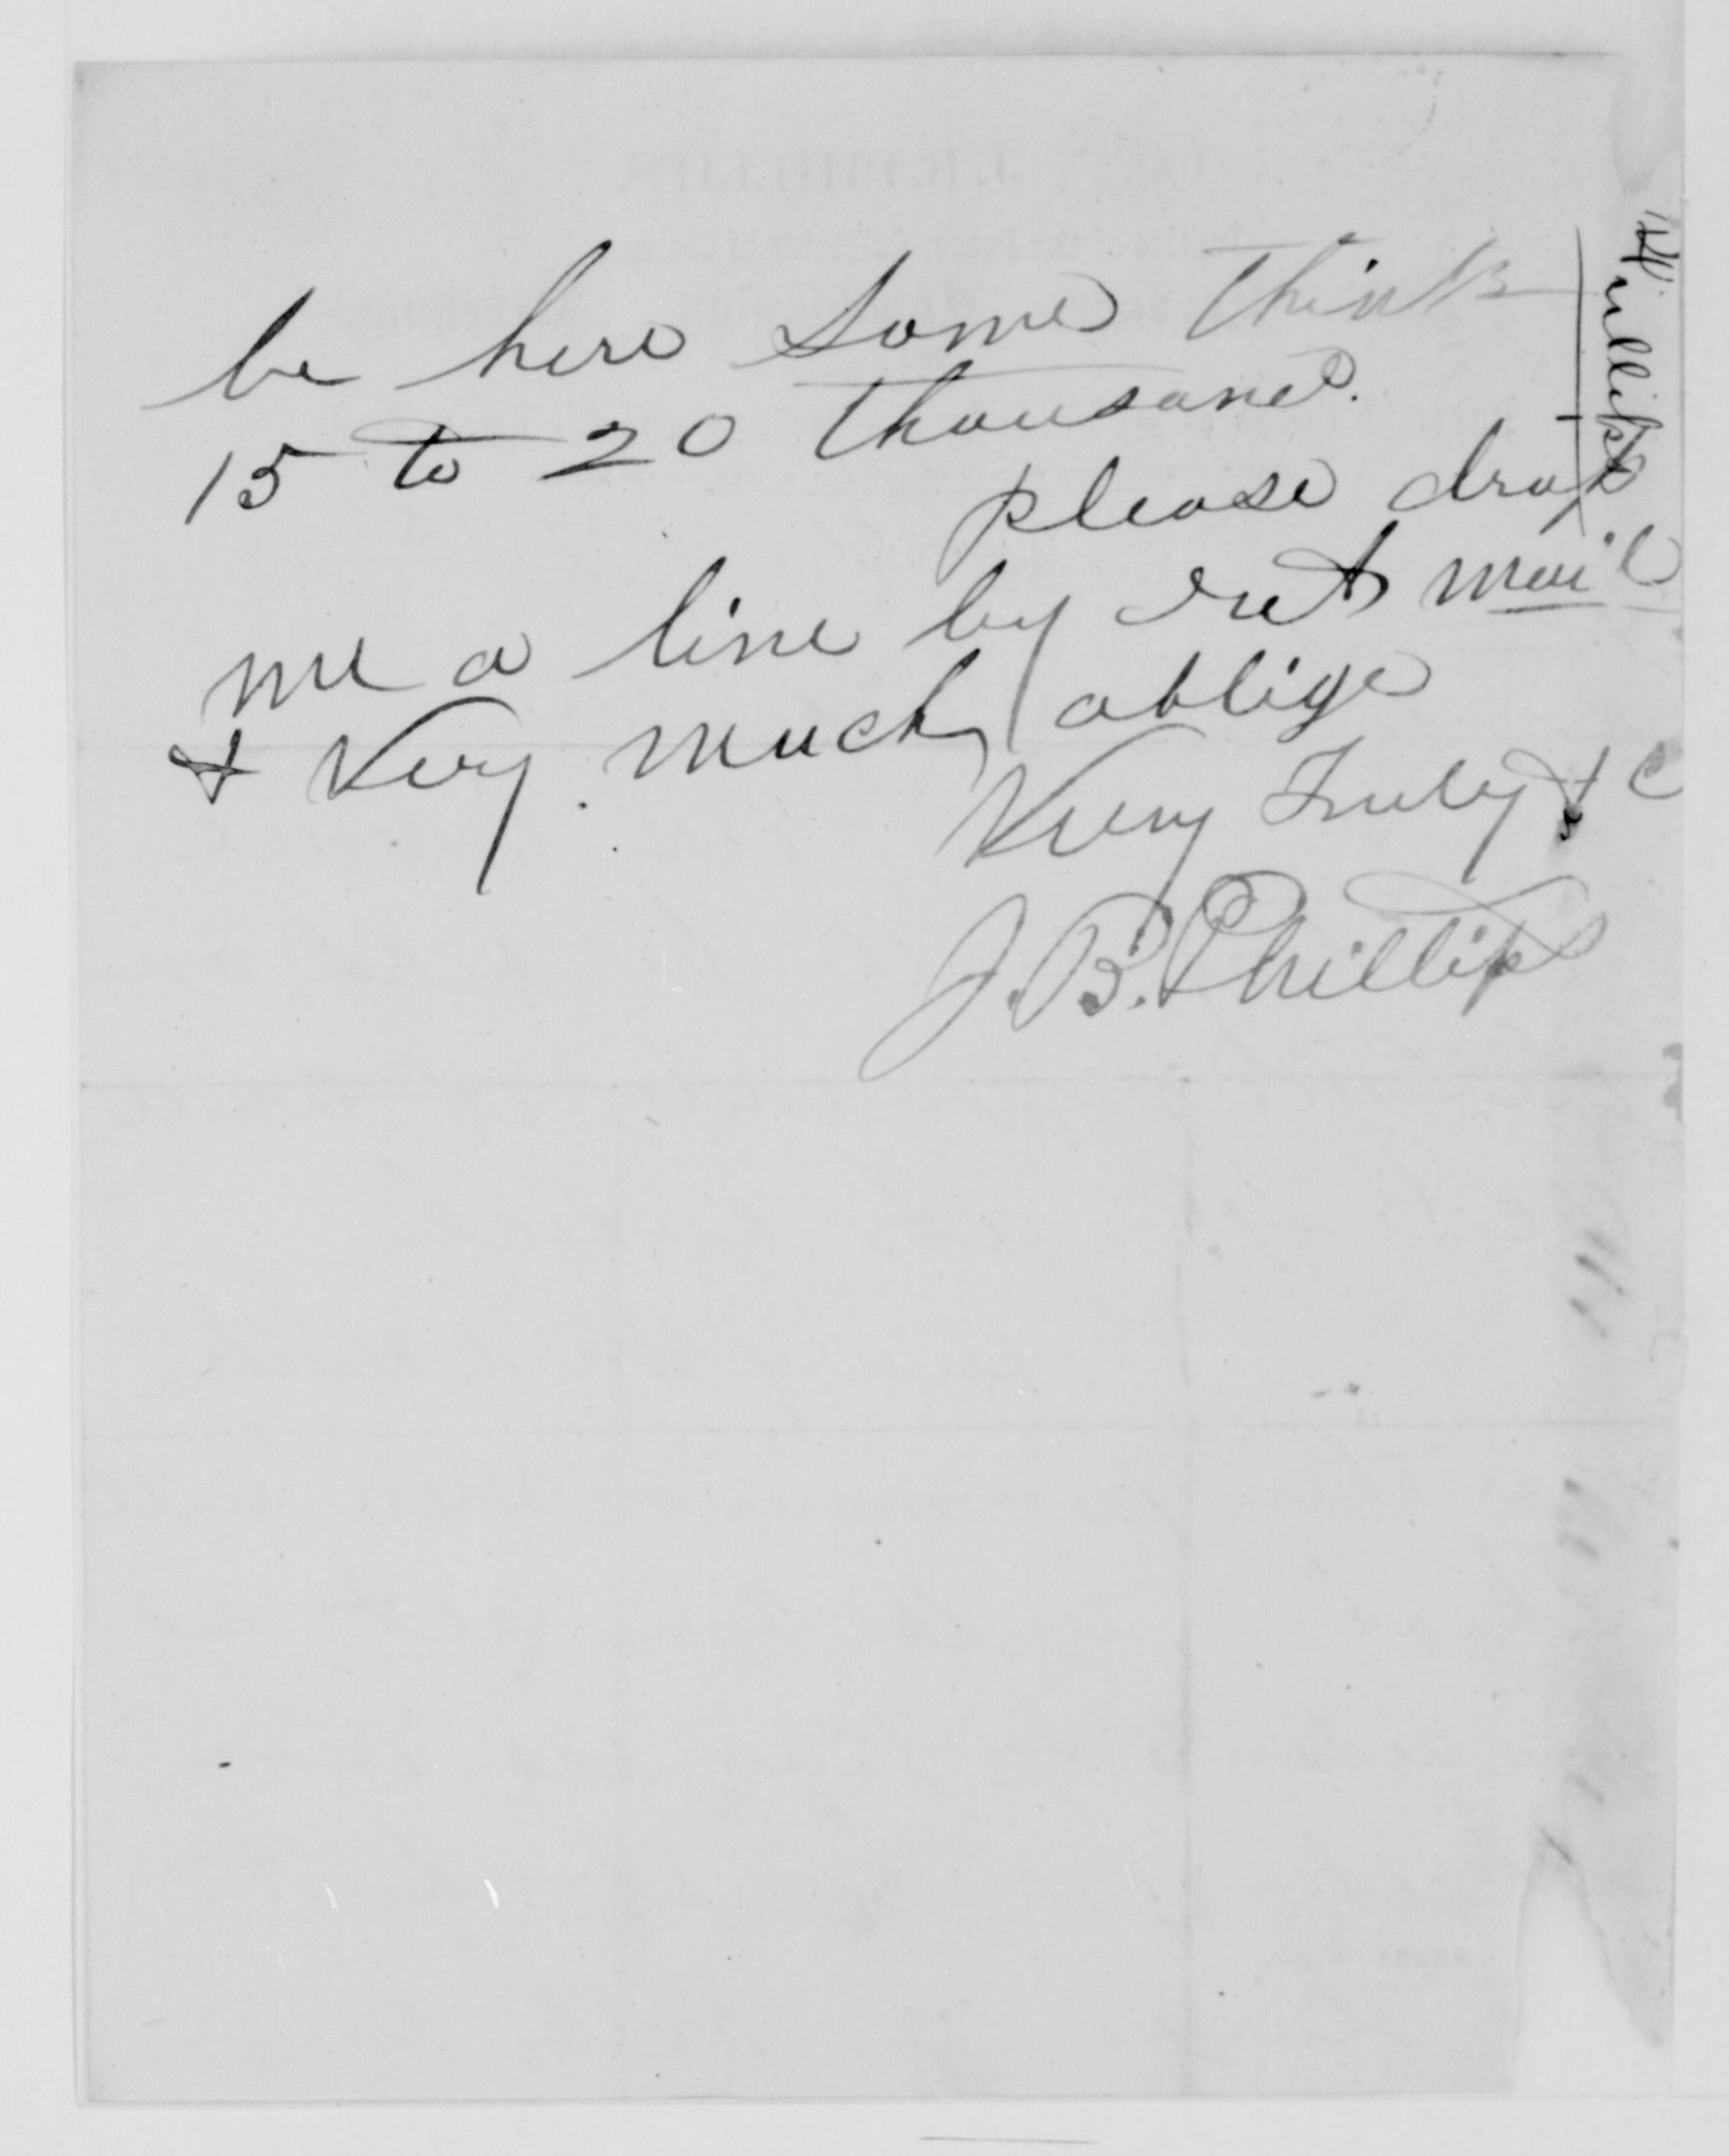 be here some think
15 to 20 thousand.
please drop
me a line by ret mail
& Very much oblige
Very Truly & C
J. B. Phillips
Phillips